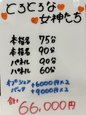 とろとろな
女神たち
本指名 75分
本指名 90分
パネル 90分
パネル 60分
オプション +6000円×2
+9000円×2
合計 66,000円